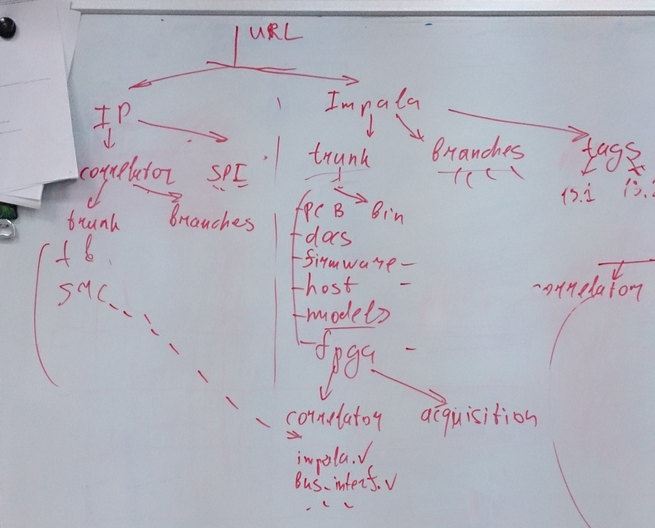 URL
IP
Impala
correlator
SPI
trunk
branches
tags
13.1
13.
trunk
branches
PCB
bin
docs
firmware -
host -
models
fpga -
correlator
correlator
acquisition
impala.v
bus_interf.v